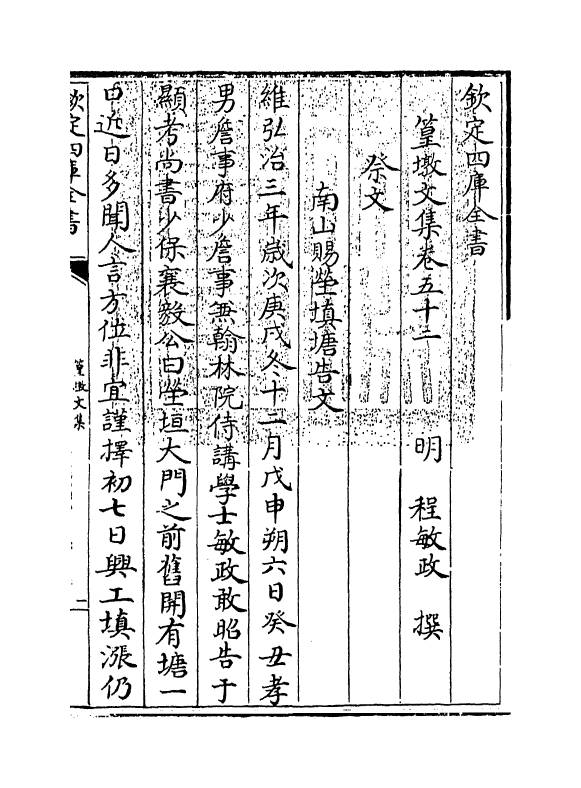 欽定四庫全書
篁墩文集卷五十三　明　程敏政　撰
祭文
南山賜塋填塘告文
維弘治三年歳次庚戌冬十二月戊申朔六日癸丑孝
男詹事府少詹事無翰林院侍講學士敏政敢昭告于
顯考尚書少保襄毅公曰塋垣大門之前舊開有塘一
口近日多聞人言方位非宜謹擇初七日興工填漲仍
欽定四庫全書
篁墩文集